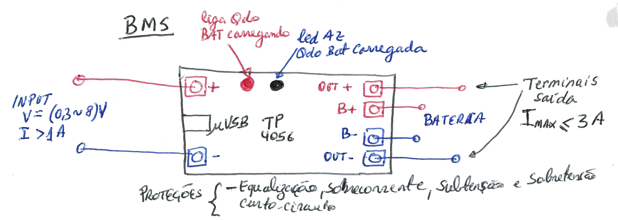 BMS
liga Qdo
BAT carregando
led AZ
Qdo Bat Carregada
INPUT
V = (0,3 ~ 8)V
I > 1A
+
-
µVSB
TP
4056
OUT +
B+
B-
OUT-
BATERIA
Terminais
saída
IMAX ≤ 3A
PROTEÇÕES { - Equalização, sobrecorrente, subtensão e sobretensão
curto-circuito